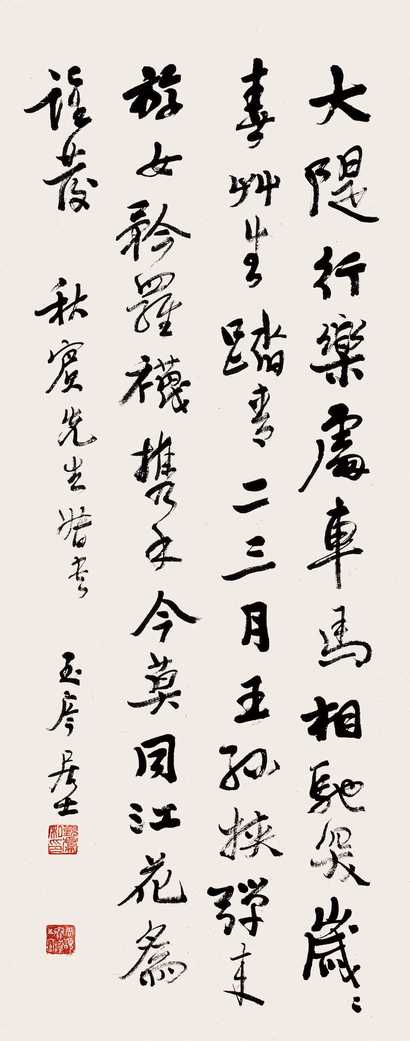 大隄行樂處車馬相馳突歲〻
春艸生踏青二三月王孫挾彈來
遊女矜羅襪携手今莫同江花為
誰發 秋賓先生督書 玉岑居士